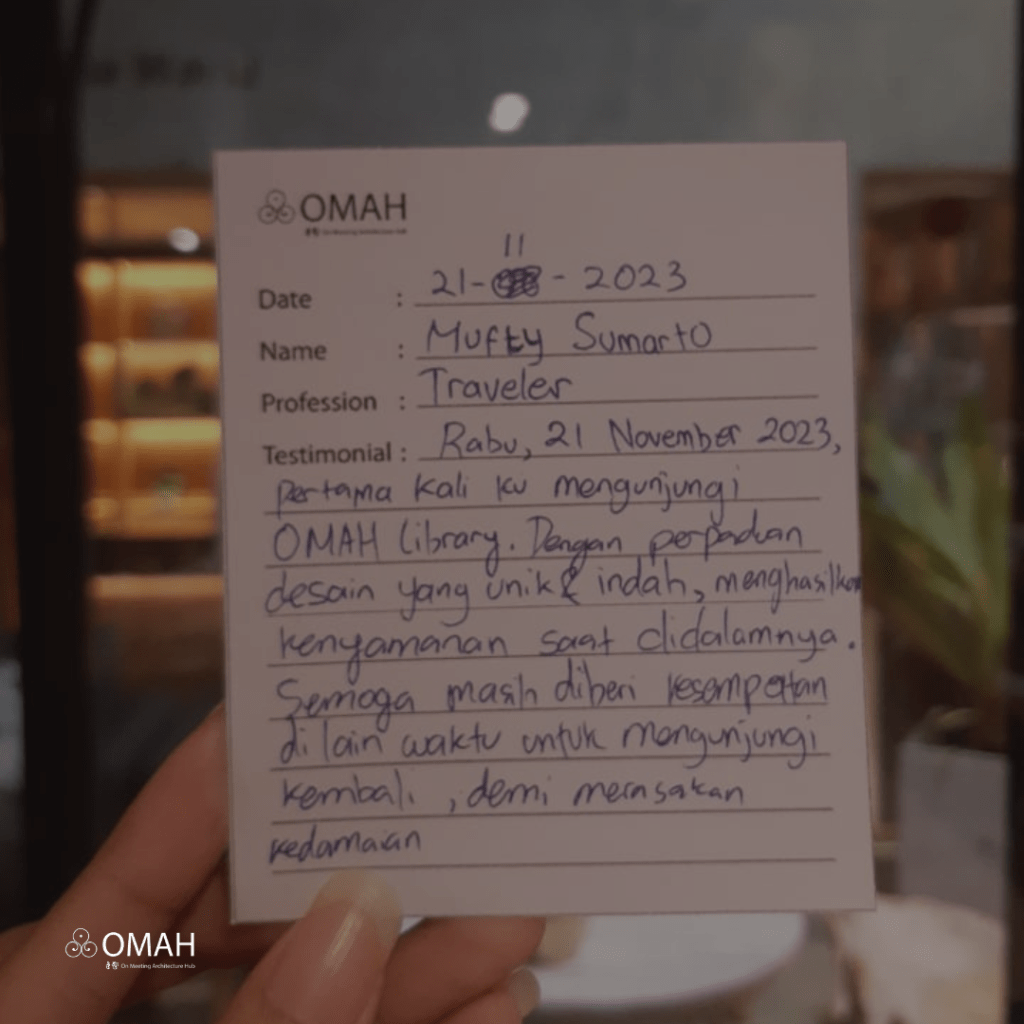 OMAH
On Meeting Architecture Hub
11
Date : 21- - 2023
Name : Mufty Sumarto
Profession : Traveler
Testimonial : Rabu, 21 November 2023,
pertama kali ku mengunjungi
OMAH Library. Dengan perpaduan
desain yang unik & indah, menghasilkan
kenyamanan saat didalamnya.
Semoga masih diberi kesempatan
di lain waktu untuk mengunjungi
kembali , demi merasakan
kedamaian
OMAH
On Meeting Architecture Hub